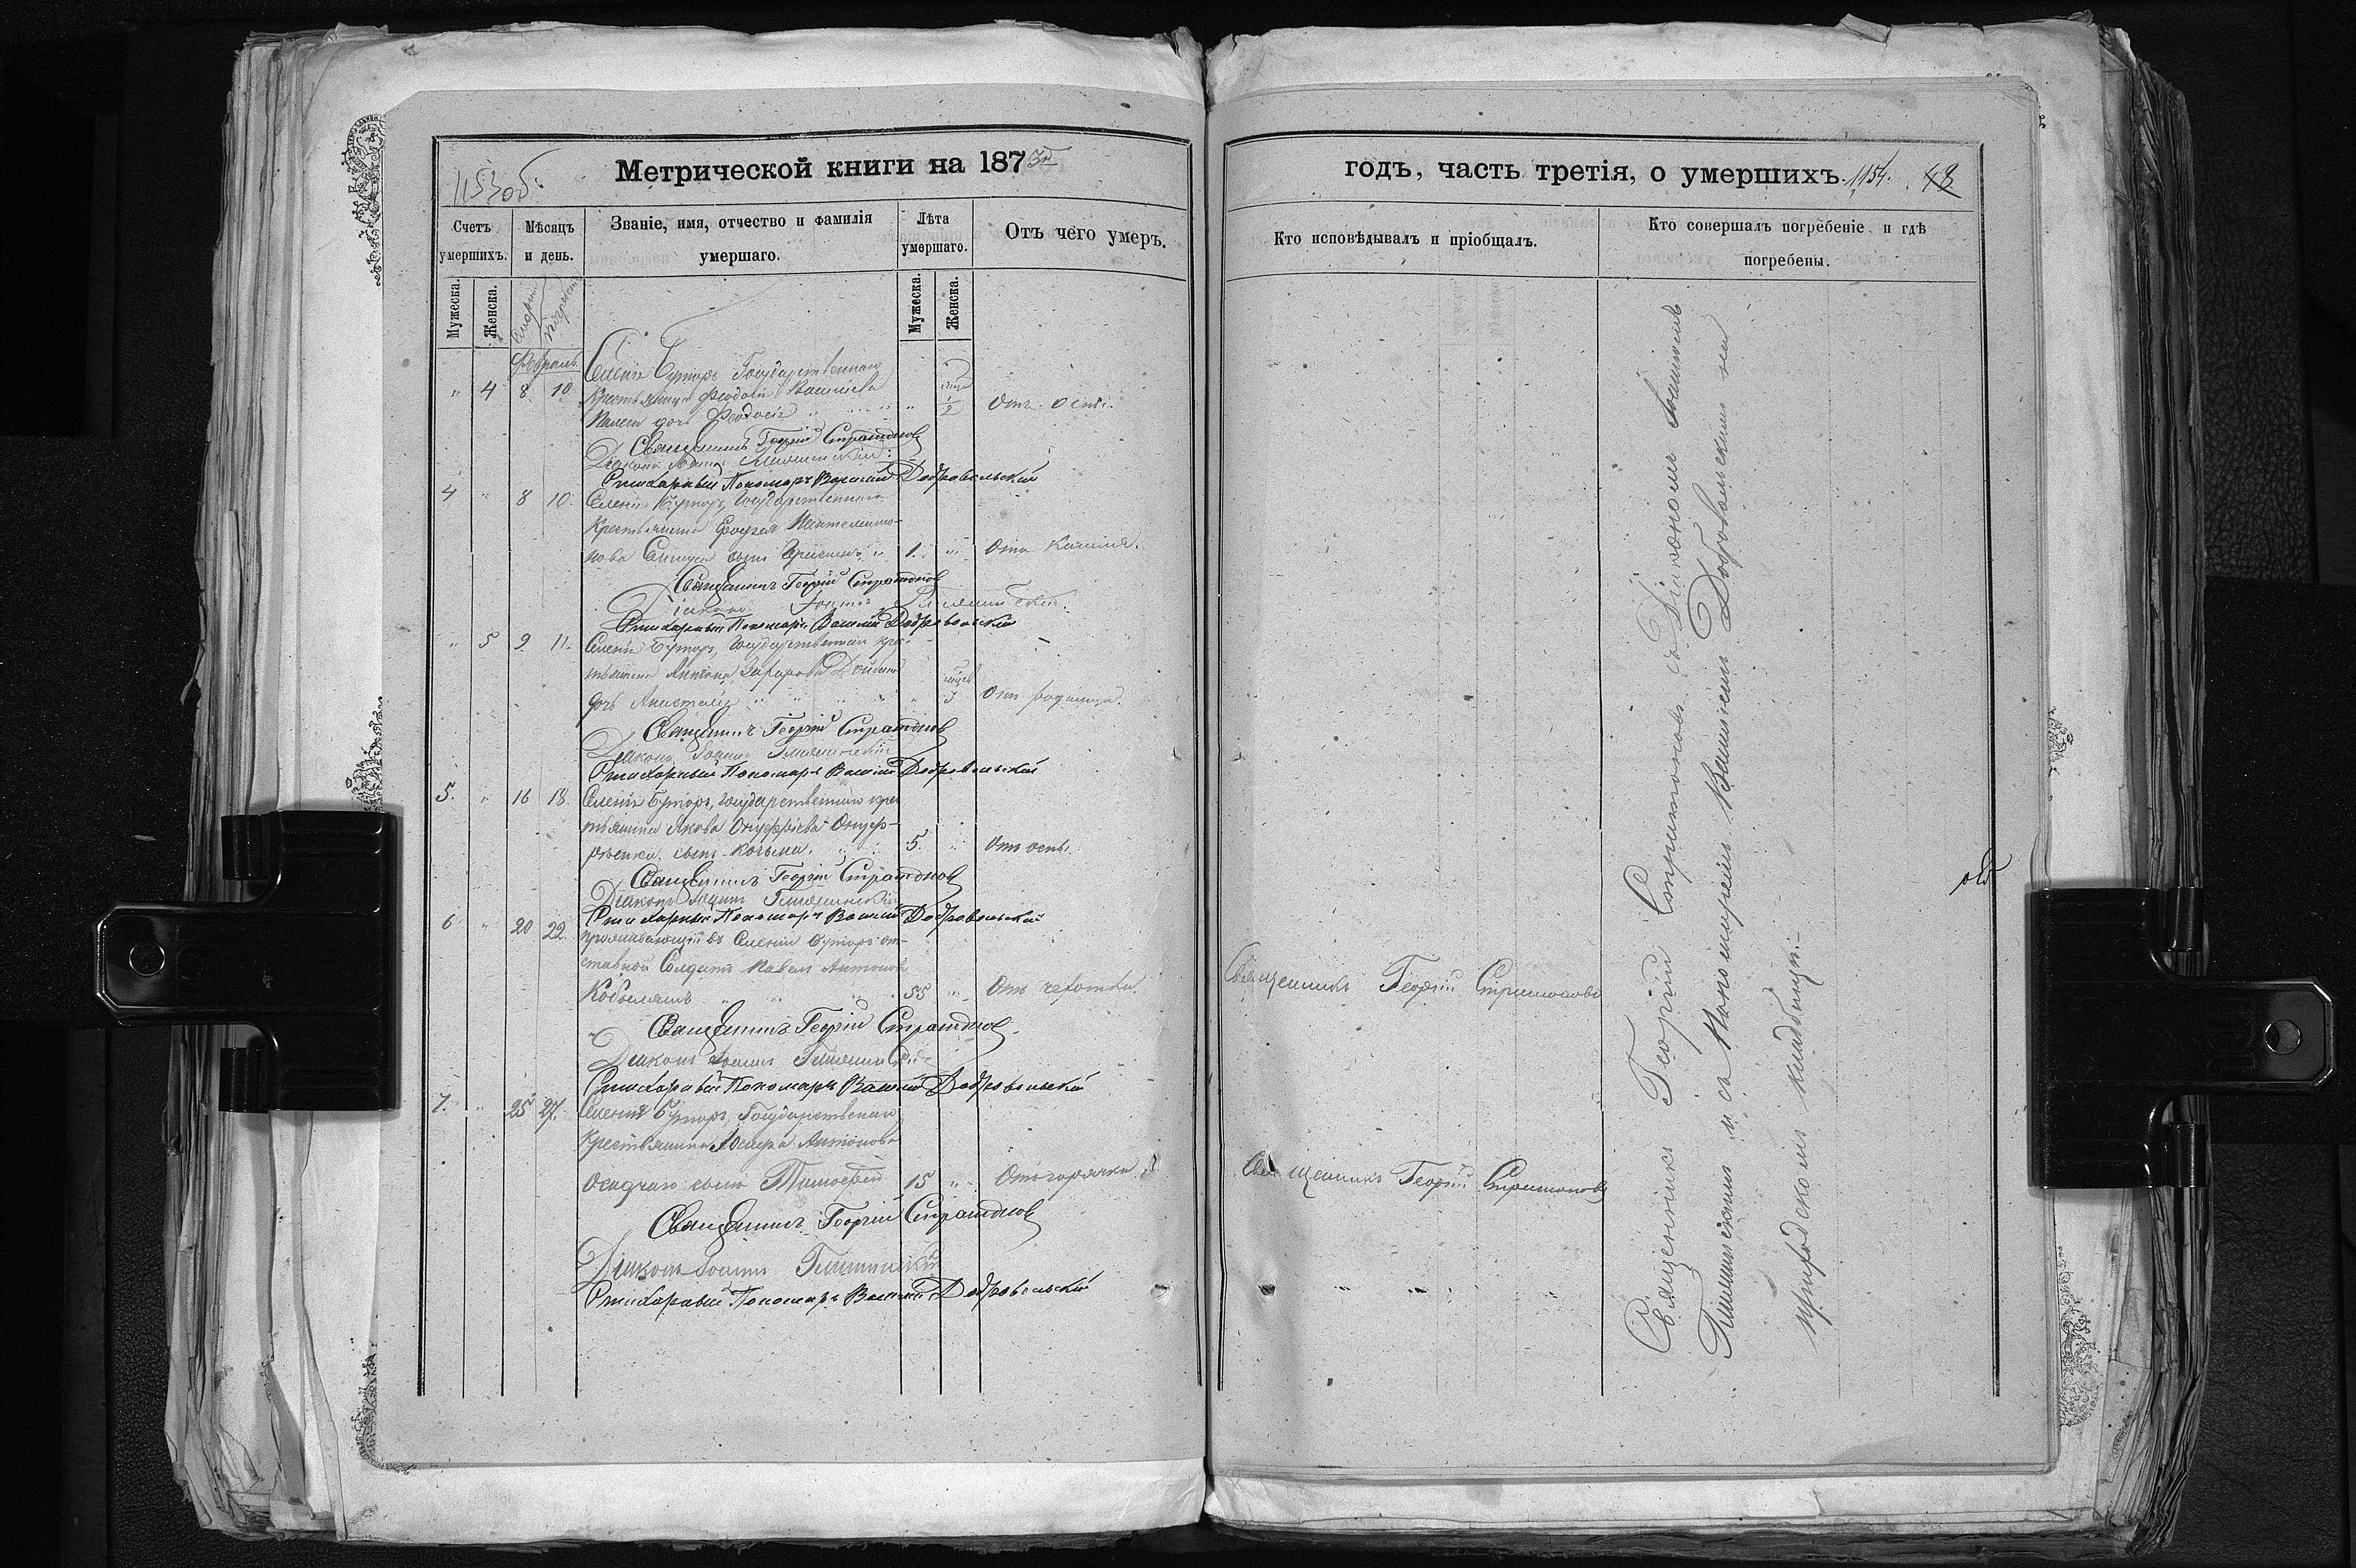 Метрической книги на 187 3й
1153 об.
Счетъ умершихъ.
Мѣсяцъ и день.
Званіе, имя, отчество и фамилія умершаго.
Лѣта умершаго.
Отъ чего умеръ.
Мужеска.
Женска.
Мужеска.
Женска.
Февраль
" 4 8 10
Селенія Буторъ Государственнаго
Крестьянина Феодосія Василіева
дочь Феодосія " 1/2
Отъ оспы.
Священникъ Георгій Стратоновъ
Діаконъ Іоаннъ
Стихарный Пономарь Василій Добровольскій
4 " 8 10.
Селенія Буторъ, Государственнаго
Крестьянина
сынъ 1. " Отъ кашля.
Священникъ Георгій Стратоновъ
Діаконъ Іоаннъ
Стихарный Пономарь Василій Добровольскій
" 5 9 11.
Селенія Буторъ, Государственнаго кре-
стьянина
дочь Анастасія " Отъ родимца.
Священникъ Георгій Стратоновъ
Діаконъ Іоаннъ
Стихарный Пономарь Василій Добровольскій
5. " 16 18.
Селенія Буторъ, Государственнаго кре
стьянина Якова Онуфріева Онуф-
рѣенка сынъ Козьма. 5. " Отъ оспы.
Священникъ Георгій Стратоновъ
Діаконъ Іоаннъ
Стихарный Пономарь Василій Добровольскій
6 " 20 22
проживающій въ Селеніи Буторъ от-
ставной Солдатъ Павелъ Антоновъ
55 " Отъ чахотки.
Священникъ Георгій Стратоновъ
Діаконъ Іоаннъ
Стихарный Пономарь Василій Добровольскій
7. " 25 27.
Селенія Буторъ, Государственнаго
Крестьянина Антонова
сынъ Тимофей 15 " Отъ горячки
Священникъ Георгій Стратоновъ
Діаконъ Іоаннъ
Стихарный Пономарь Василій Добровольскій
годъ, часть третія, о умершихъ.
1154. 48
Кто исповѣдывалъ и пріобщалъ.
Кто совершалъ погребеніе и гдѣ погребены.
Священникъ Георгій Стратоновъ
Священникъ Георгій Стратоновъ
Священникъ Георгій Стратоновъ съ Діакономъ Іоанномъ
и съ Пономаремъ Василіемъ Добровольскимъ на
приходскомъ кладбищѣ.